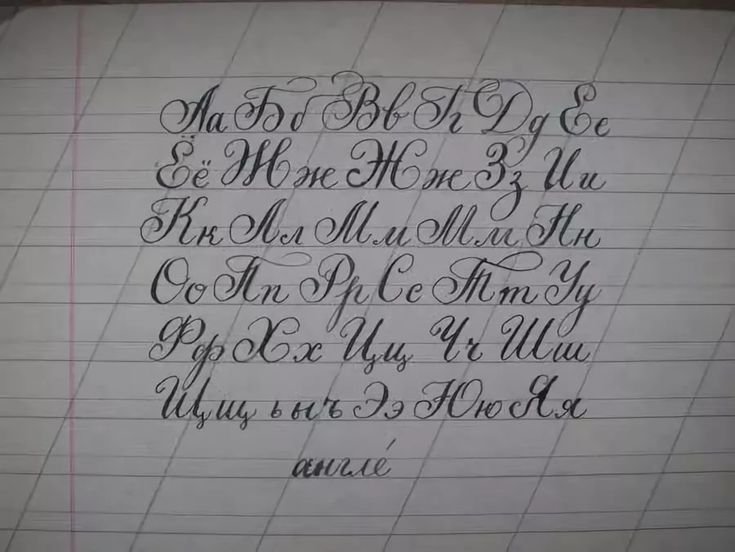 Аа Бб Вв Гг Дд Ее
Ёё Жж Жж Зз Ии
Кк Лл Мм Мм Нн
Оо Пп Рр Сс Тт Уу
Фф Хх Цц Чч Шш
Щщ ь ы ъ Ээ Юю Яя
англе́